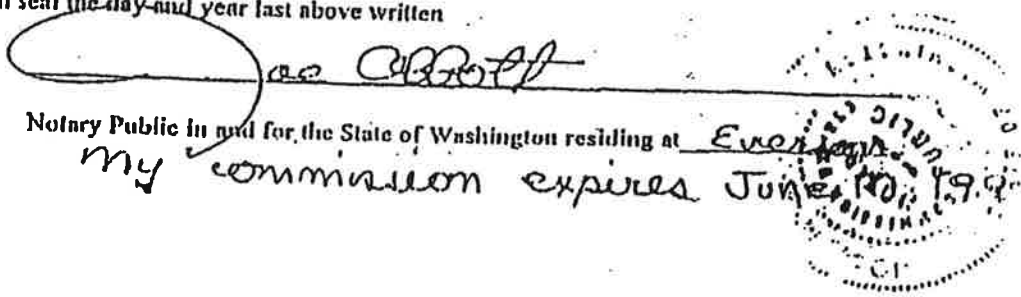 seal the day and year last above written
Joe Abbott
Notary Public in and for the State of Washington residing at Everson
My commission expires June 19